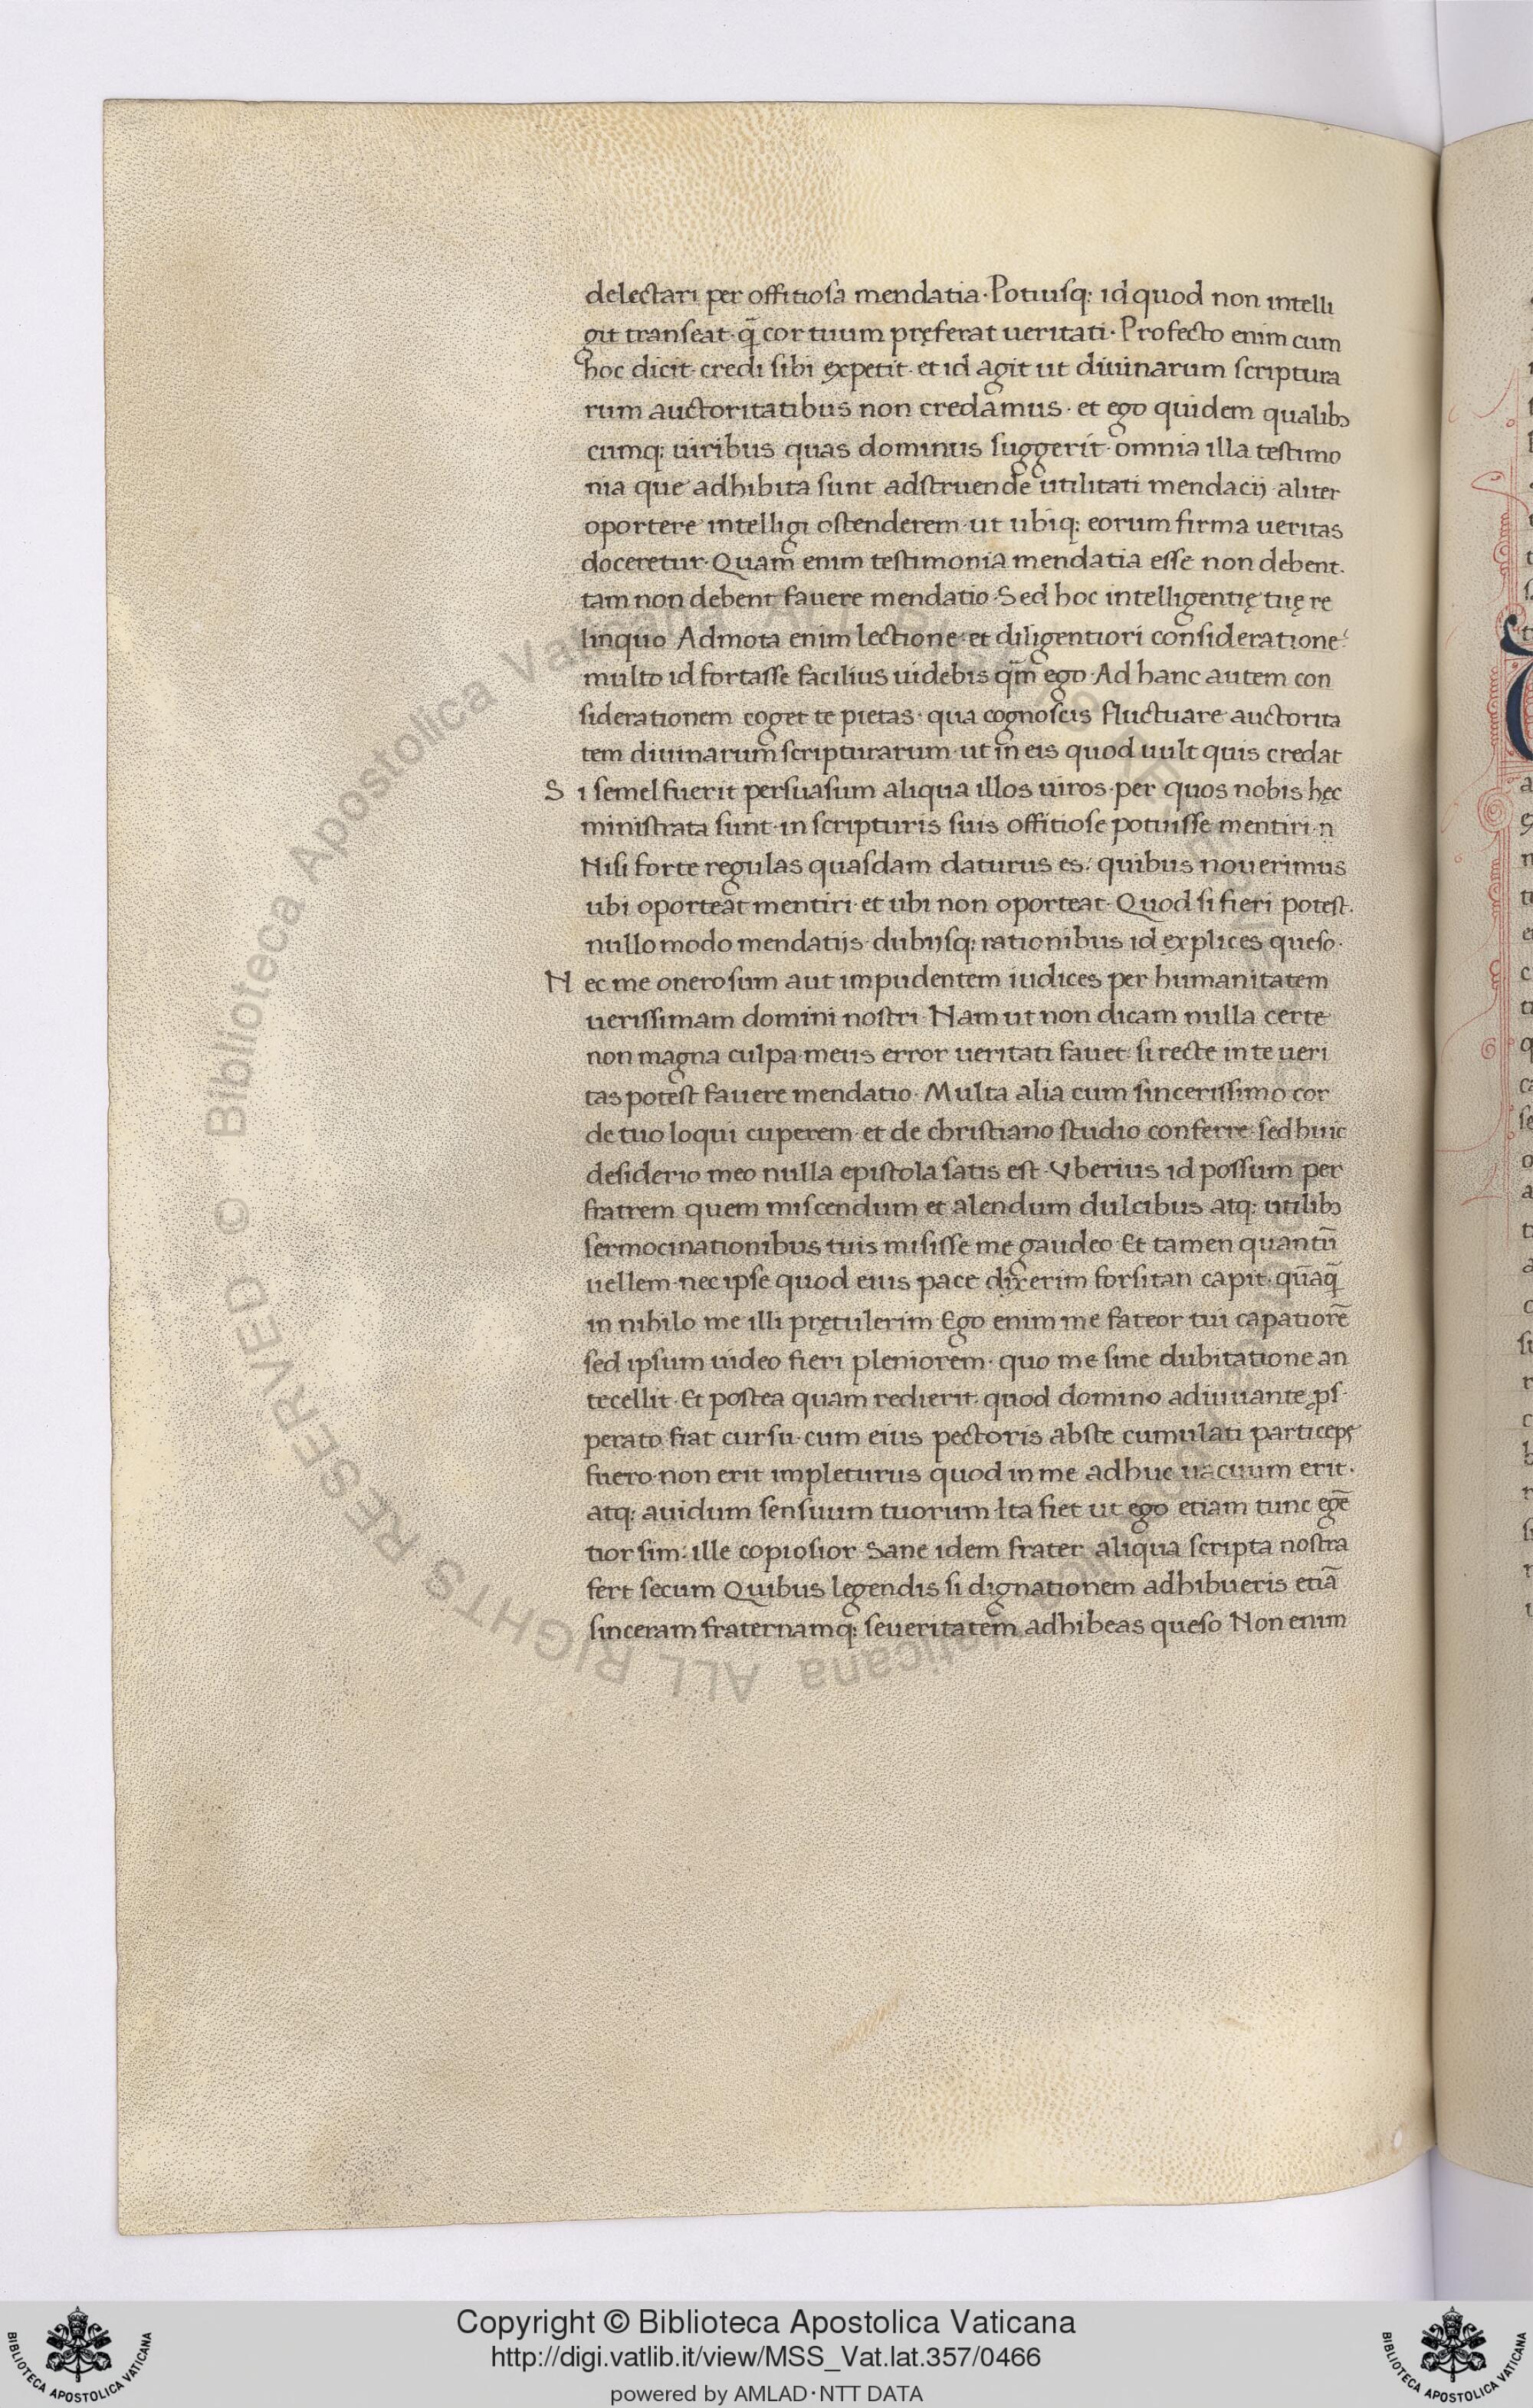 delectari per offitiosa mendatia · Potiusq: id quod non intelli
git transeat · q̄ cor tuum pręferat ueritati · Profecto enim cum
hoc dicit · credi sibi expetit · et id agit ut diuinarum scriptura
rum auctoritatibus non credamus · et ego quidem qualibꝫ
cumq: uiribus quas dominus suggerit · omnia illa testimo
nia que adhibita sunt adstruende utilitati mendacij aliter
oportere intelligi ostenderem · ut ubiq: eorum firma ueritas
doceretur · Quam enim testimonia mendatia esse non debent ·
tam non debent fauere mendatio · Sed hoc intelligentię tuę re
linquo Admota enim lectione · et diligentiori consideratione ·
multo id fortasse facilius uidebis qm̄ ego · Ad hanc autem con
siderationem coget te pietas · qua cognoscis fluctuare auctorita
tem diuinarum scripturarum · ut in eis quod uult quis credat
S i semel fuerit persuasum aliqua illos uiros · per quos nobis hęc
ministrata sunt · in scripturis suis offitiose potuisse mentiri · n
Nisi forte regulas quasdam daturus es: quibus nouerimus
ubi oporteat mentiri · et ubi non oporteat · Quod si fieri potest ·
nullo modo mendatijs · dubijsq: rationibus id explices queso ·
N ec me onerosum aut impudentem iudices per humanitatem
uerissimam domini nostri · Nam ut non dicam nulla certe
non magna culpa meus error ueritati fauet · si recte in te ueri
tas potest fauere mendatio · Multa alia cum sincerissimo cor
de tuo loqui cuperem · et de christiano studio conferre · sed huic
desiderio meo nulla epistola satis est · Vberius id possum per
fratrem quem miscendum et alendum dulcibus atq: utilibꝫ
sermocinationibus tuis misisse me gaudeo · Et tamen quantū
uellem · nec ipse quod eius pace dixerim forsitan capit · quāq̄
in nihilo me illi pretulerim · Ego enim me fateor tui capatiorē
sed ipsum uideo fieri pleniorem · quo me sine dubitatione an
tecellit · Et postea quam redierit · quod domino adiuuante ꝓs
perato fiat cursu · cum eius pectoris abste cumulati particeps
fuero · non erit impleturus quod in me adhuc uacuum erit ·
atq: auidum sensuum tuorum · Ita fiet ut ego etiam tunc egē
tior sim: ille copiosior · Sane idem frater aliqua scripta nostra
fert secum Quibus legendis si dignationem adhibueris etiā
sinceram fraternamq: seueritatem adhibeas queso Non enim
Biblioteca Apostolica Vaticana ALL RIGHTS RESERVED ©
Copyright © Biblioteca Apostolica Vaticana
http://digi.vatlib.it/view/MSS_Vat.lat.357/0466
powered by AMLAD · NTT DATA
BIBLIOTECA APOSTOLICA VATICANA
BIBLIOTECA APOSTOLICA VATICANA